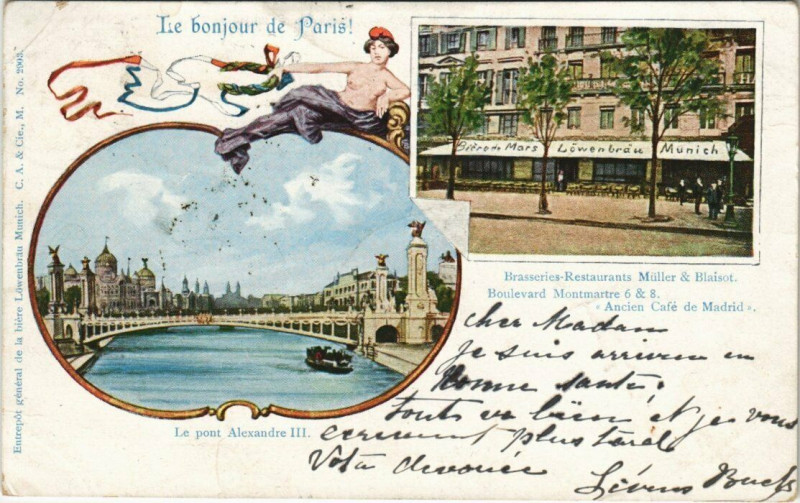 Le bonjour de Paris!
Entrepôt général de la bière Löwenbräu Munich. C. A. & Cie., M. No. 2903.
Bière de Mars Löwenbräu Munich
Brasseries-Restaurants Müller & Blaisot.
Boulevard Montmartre 6 & 8.
« Ancien Café de Madrid ».
Le pont Alexandre III.
cher Madam
je suis arriven en
bonne santé.
touts va bien et je vous
ecrirement plus tard
Vota devouée